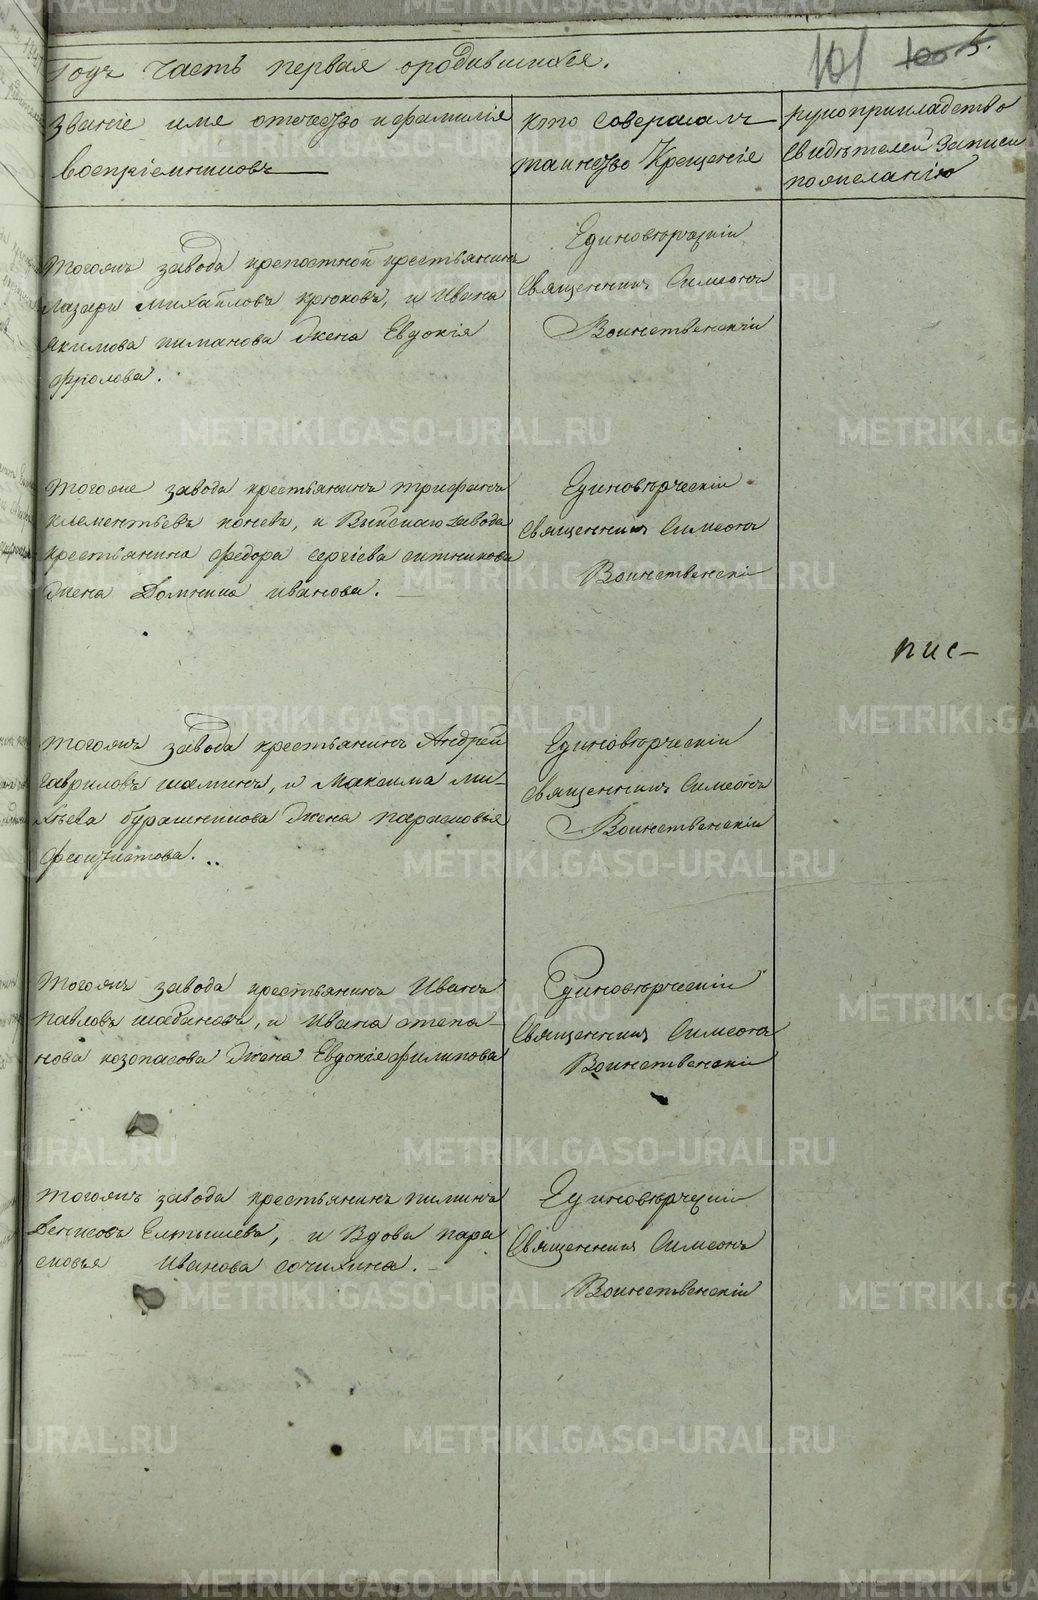 годъ часть первая ородившихся.
101 100 5.
Званіе имя отчество и фамилія
воспріемниковъ
Кто совершалъ
таинство Крещенія
рукоприкладство
свидѣтелей записи
пожеланію
Тогожъ завода крепостной крестьянинъ
Лазарь Михайловъ крюковъ, и Ивана
Якимова пиманова Жена Евдокія
Фролова.
Единовѣрческій
Священникъ Симеонъ
Воинственскій
Тогоже завода крестьянинъ трифанъ
клементьевъ коневъ, и Выйскаго завода
крестьянина Федора сергіева ситникова
Жена Домника иванова.
Единовѣрческій
Священникъ Симеонъ
Воинственскій
пис-
Тогожъ завода крестьянинъ Андрей
гавриловъ шаминъ, и Максима ми-
хѣева бурашникова Жена парасковья
феоктистова.
Единовѣрческій
Священникъ Симеонъ
Воинственскій
Тогожъ завода крестьянинъ Иванъ
павловъ шабановъ, и Ивана степа-
нова козопасова Жена Евдокіе филипова
Единовѣрческій
Священникъ Симеонъ
Воинственскій
Тогожъ завода крестьянинъ пиминъ
Денисовъ Елтышевъ, и Вдова пара
сковья Иванова сочилина.
Единовѣрческій
Священникъ Симеонъ
Воинственскій
METRIKI.GASO-URAL.RU